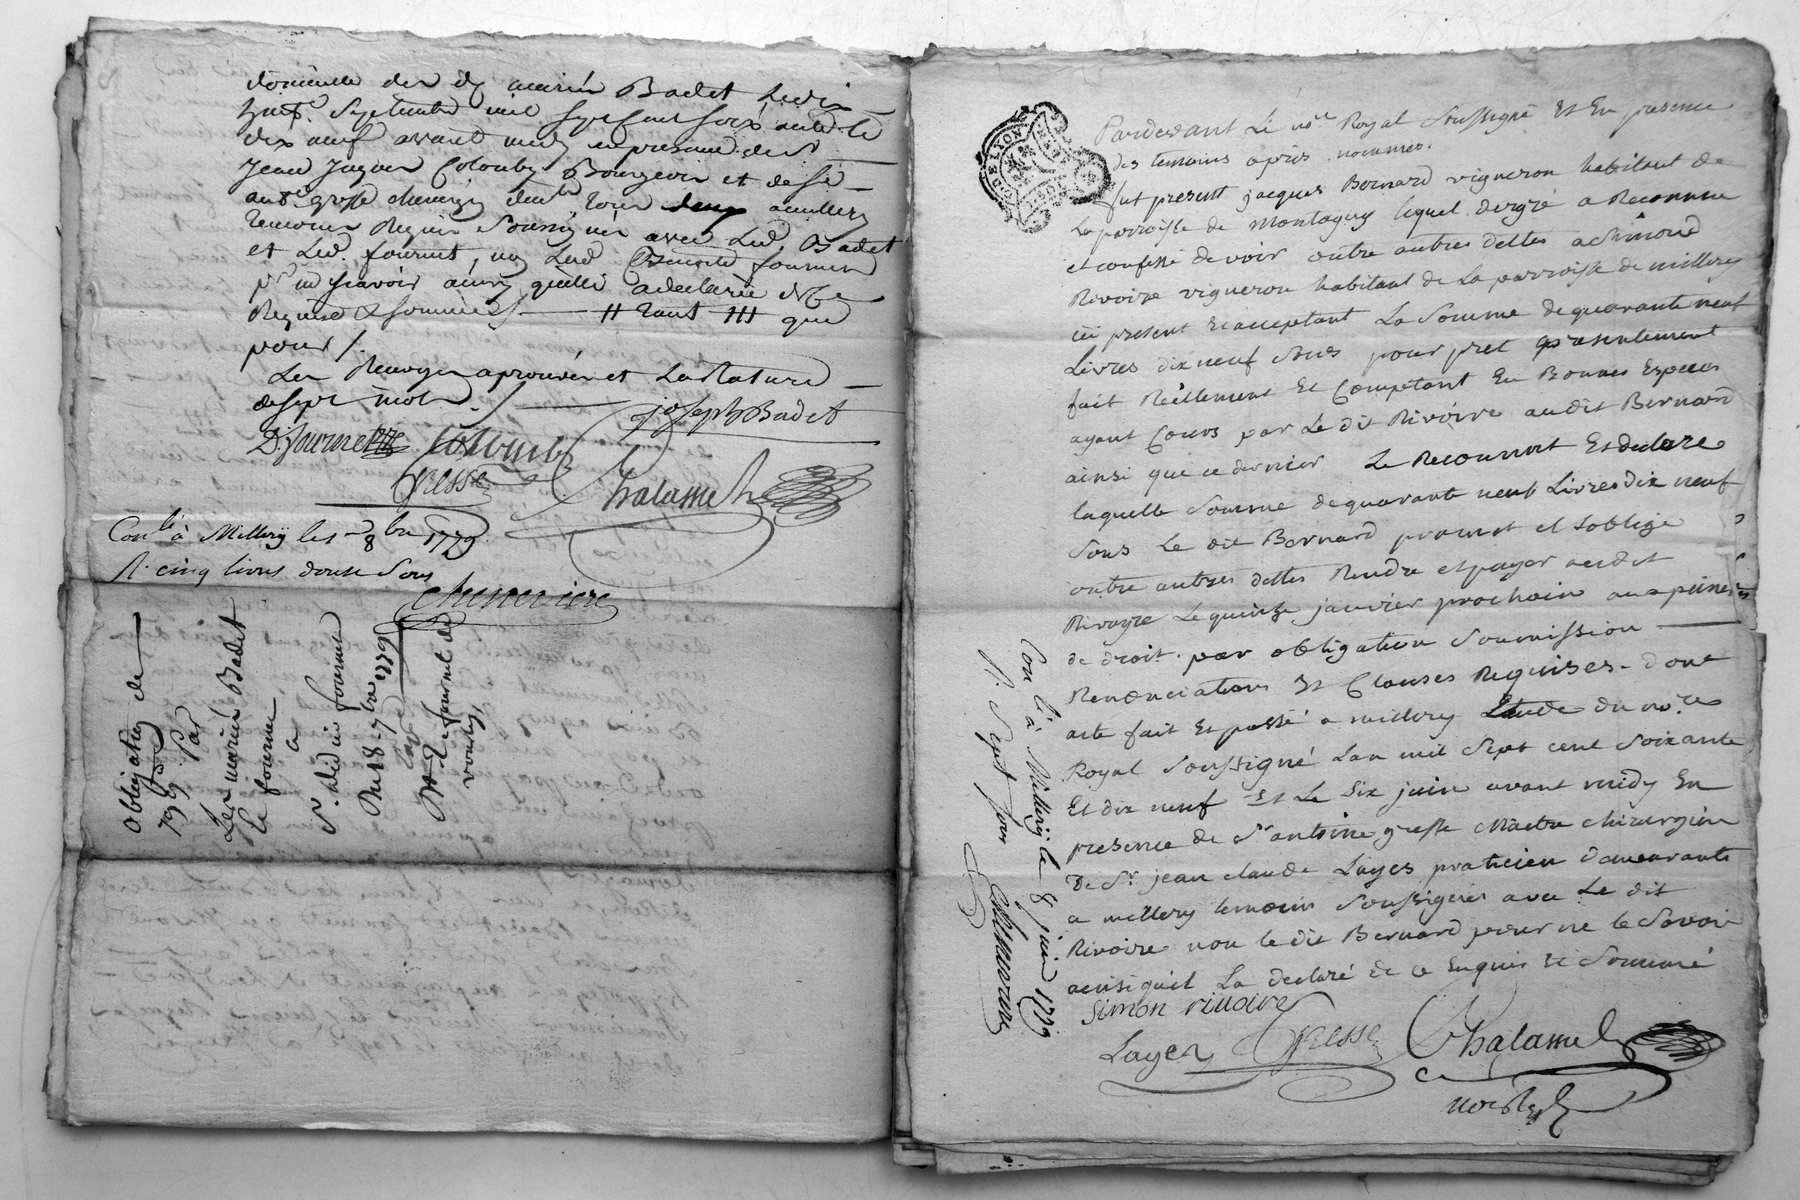 domicille des dt mariés Badet Ledix
huit. Septembre mil sept cent soix ante et
dix neuf avant midy en presence de Sr
Jean Jaques Colomby Bourgeois et de Sr
ant. gresse chirurgien
temoins Requis Soussignés avec Led. Badet
et Led. fournet,
scavoir ainsy quelle adeclarée de ce
Requise & sommée ./. tant que
pour ./.
Les Renvoyes aprouvés et La Rature
de sept mots ./.
joseph Badet
D. fournet Colomb
Gresse Chalamel
Con.lé à Millery les 8bre 1779
R. cinq livres douse Sous
Chenevriere
Obligation de
Par
Les mariés Badet
le fournie
a
S. Did ier fournet
Du 18 - 7bre 1779
PARDEVANT Le nre Royal Soussigné Et En presence
des temoins après nommes.
fut present jacques Bernard vigneron habitant de
La parroisse de Montagny lequel degré a Reconnu
et confessé devoir outre autres dettes a Simond
Rivoire vigneron habitant de La parroisse de millery
ici present Et acceptant La Somme de quarante neuf
Livres dix neuf Sous pour pret presentement
fait Réellement Et Comptant En Bonnes Especes
ayant Cours par Le dit Rivoire audit Bernard
ainsi que ce dernier Le Reconnoit Et declare
laquelle Somme de quarante neuf Livres dix neuf
Sous Le dit Bernard promet et Soblige
outre autres dettes Rendre et payer audit
Rivoyre Le quinze janvier prochain aux peines
de droit. par obligation Soumission
Renonciations Et Clauses Requises. dont
acte fait Et passé a millery Etude du no.re
Royal Soussigné Lan mil Sept cent Soixante
Et dix neuf Et Le Six juin avant midy En
presence de Sr antoine gresse Maitre chirurgien
De Sr jean claude Layes praticien demeurants
a millery temoins Soussignés avec Le dit
Rivoire non le dit Bernard pour ne le Savoir
ainsi quil La declaré de ce Enquis Et Sommé
Simon riuoire
Layes Gresse Chalamel
Con.lé à Millery le 8 juin 1779
R. Sept Sous
Chenevriere
DE LYON